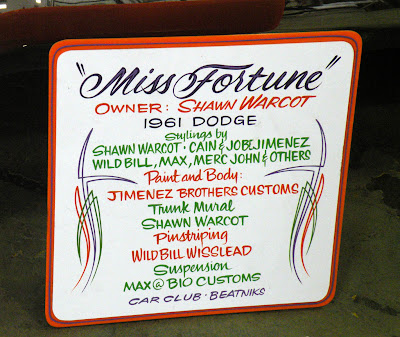 "Miss Fortune"
OWNER: SHAWN WARCOT
1961 DODGE
Stylings by
SHAWN WARCOT · CAIN & JOBEJIMENEZ
WILD BILL, MAX, MERC JOHN & OTHERS
Paint and Body:
JIMENEZ BROTHERS CUSTOMS
Trunk Mural
SHAWN WARCOT
Pinstriping
WILD BILL WISSLEAD
Suspension
MAX @ BIO CUSTOMS
CAR CLUB · BEATNIKS